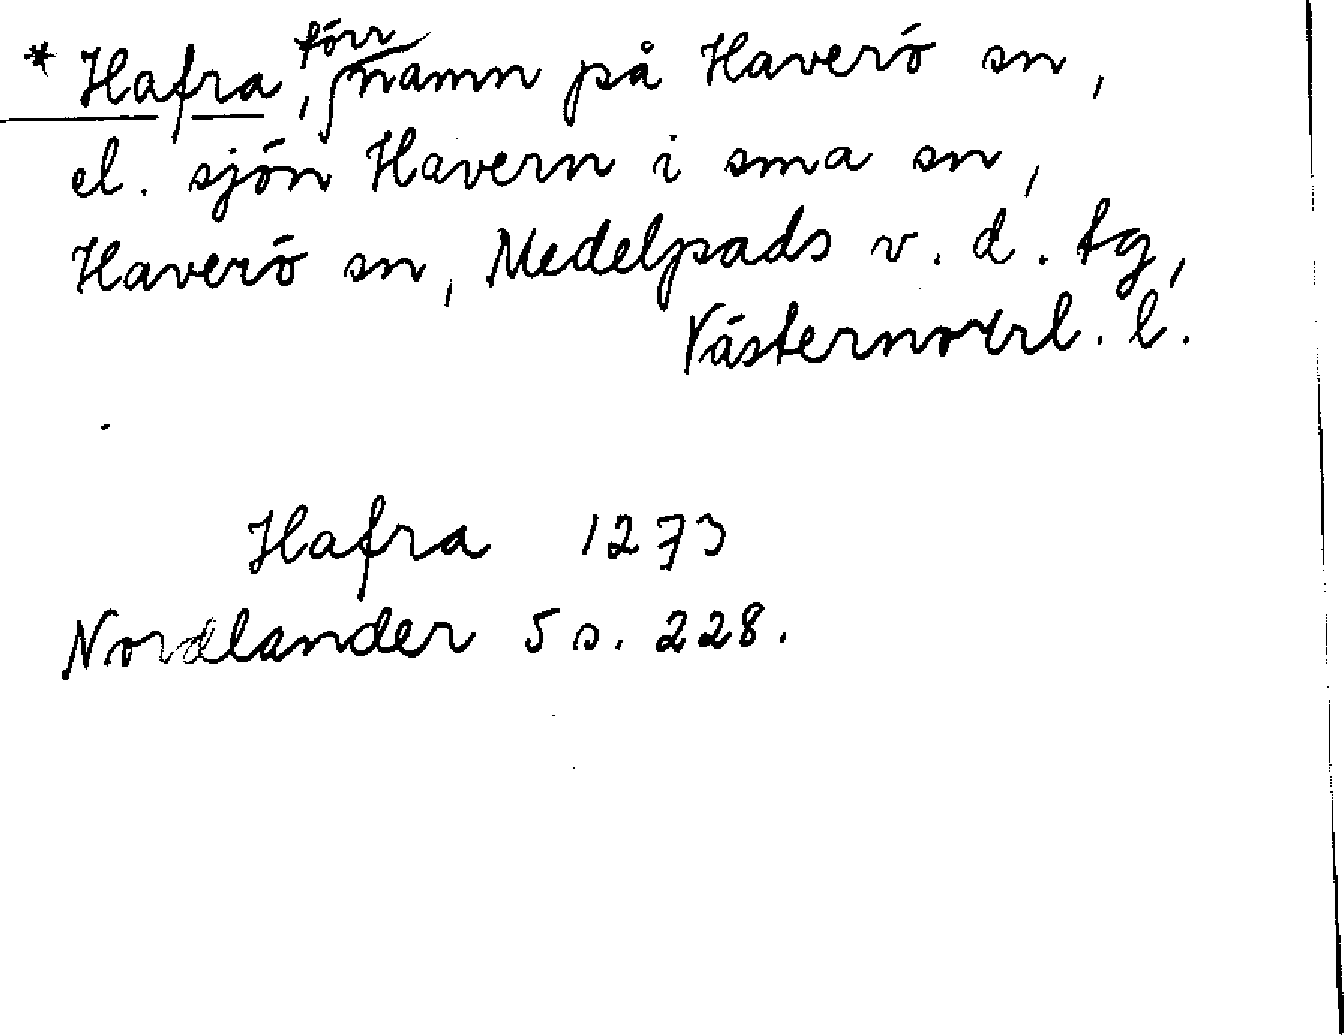 * Hafra, förr namn på Haverö sn,
el. sjön Havern i sma sn,
Haverö sn, Medelpads v. d. tg,
Västernorrl. l.
Hafra 1273
Nordlander 5 s. 228.